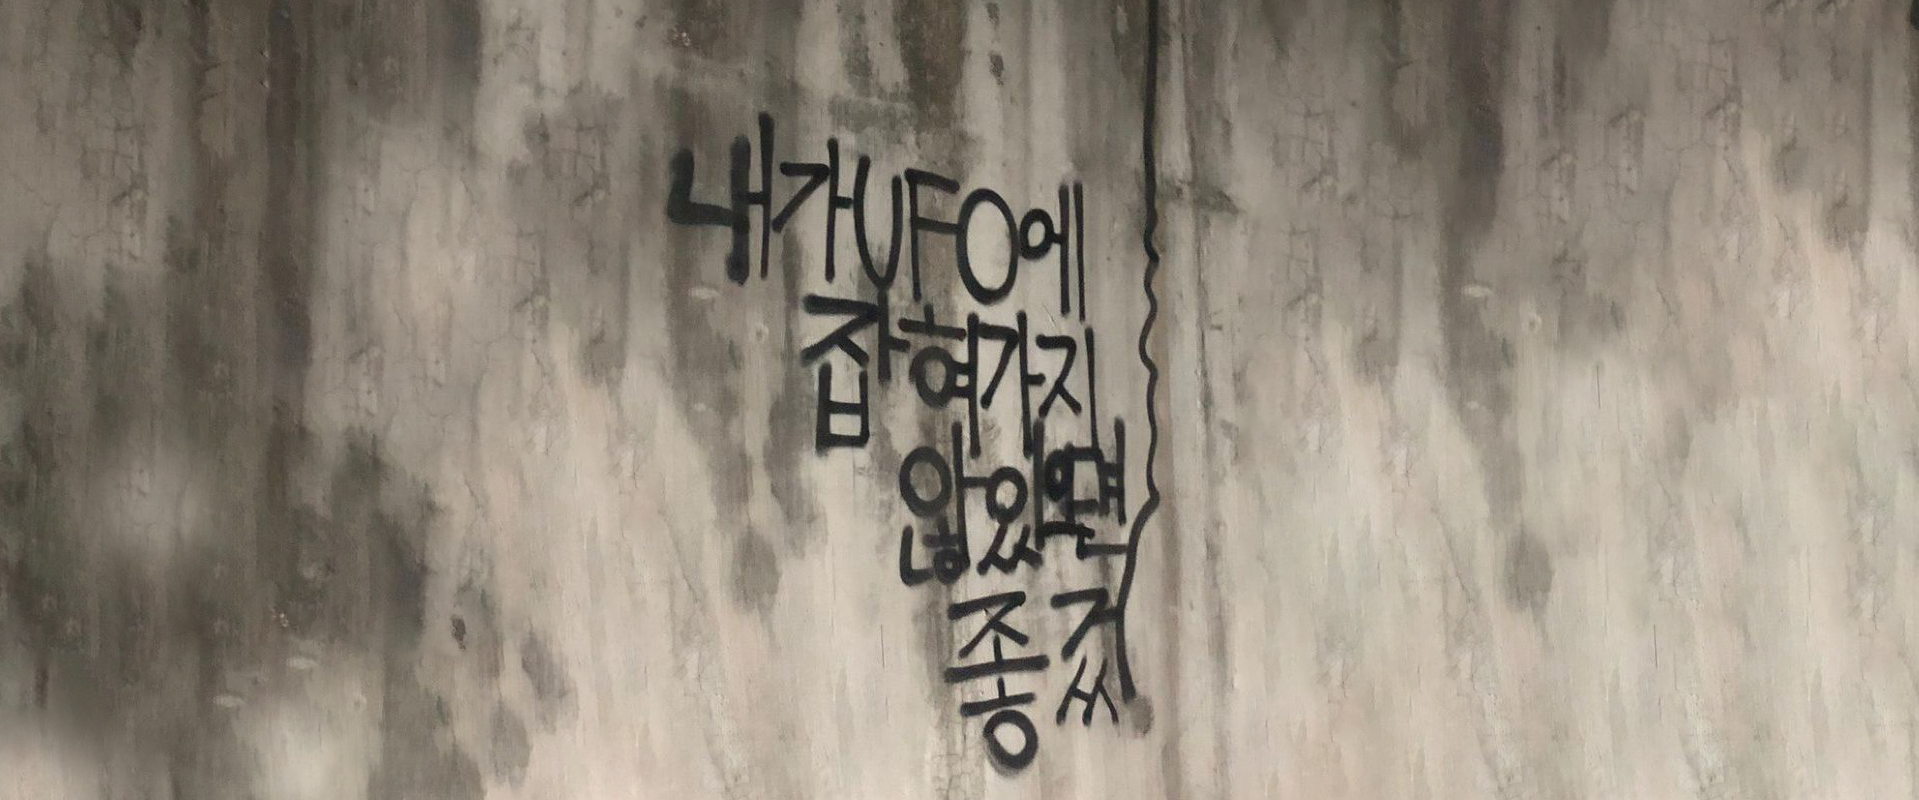 내가UFO에
잡혀가지
않았으면
좋겠